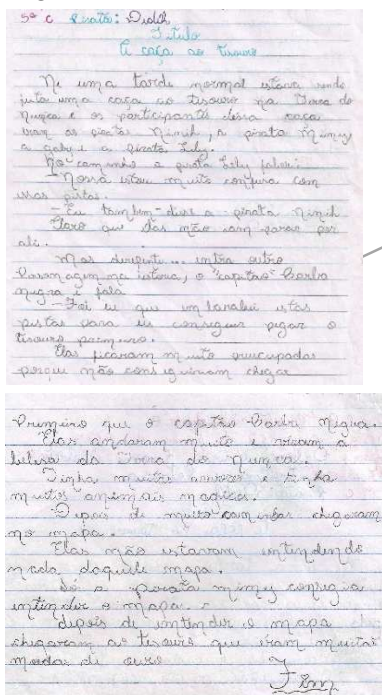 5º C Pirata: Didih
Título
A caça ao tisouro
Ni uma tarde normal estava sendo
juta uma caça ao tisouro na Terra do
Nunca e os participantes dessa caca
eram as piratas Ninih, a pirata Mimy
a gaby e a pirata Lily.
No caminho a pirata Lily falou:
– Nossa estou muito confusa com
essas pistas.
– Eu tambem – disse a pirata Ninih.
Claro que elas não iam parar por
ali.
Mas deripente... entra outro
Paramagem na istoria, o "capitão" Barba
negra e fala
– Foi eu que estas
pistas para eu conseguir pegar o
tisouro primeiro.
Elas ficaram muito preucupadas
porque não conseguiriam chegar
Primeiro que o capitão Barba Negra.
Elas andaram muito e viram a
belesa da Terra do Nunca.
Tinha muitas arvores e tinha
muitos animais magicos.
Depois de muito caminhar chegaram
no mapa.
Elas não estavam intendendo
nada daquele mapa.
Só a pirata mimy consegia
intender o mapa.
depois de intender o mapa
chegaram ao tisouro que eram muitas
moedas de ouro
Fim